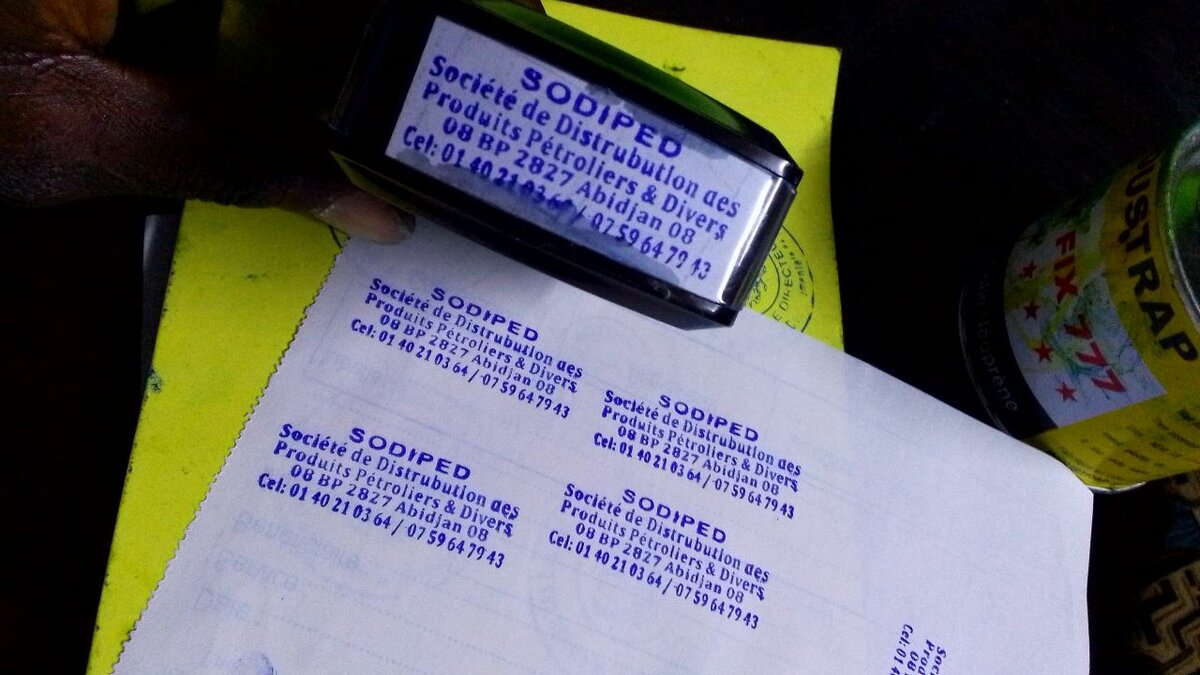 SODIPED
Société de Distrubution des
Produits Pétroliers & Divers
08 BP 2827 Abidjan 08
Cel: 01 40 21 03 64 / 07 59 64 79 43
SODIPED
Société de Distrubution des
Produits Pétroliers & Divers
08 BP 2827 Abidjan 08
Cel: 01 40 21 03 64 / 07 59 64 79 43
SODIPED
Société de Distrubution des
Produits Pétroliers & Divers
08 BP 2827 Abidjan 08
Cel: 01 40 21 03 64 / 07 59 64 79 43
SODIPED
Société de Distrubution des
Produits Pétroliers & Divers
08 BP 2827 Abidjan 08
Cel: 01 40 21 03 64 / 07 59 64 79 43
SODIPED
Société de Distrubution des
Produits Pétroliers & Divers
08 BP 2827 Abidjan 08
Cel: 01 40 21 03 64 / 07 59 64 79 43
Soci
Prod
08
Cel: 01 4
USTRAP
FIX 777